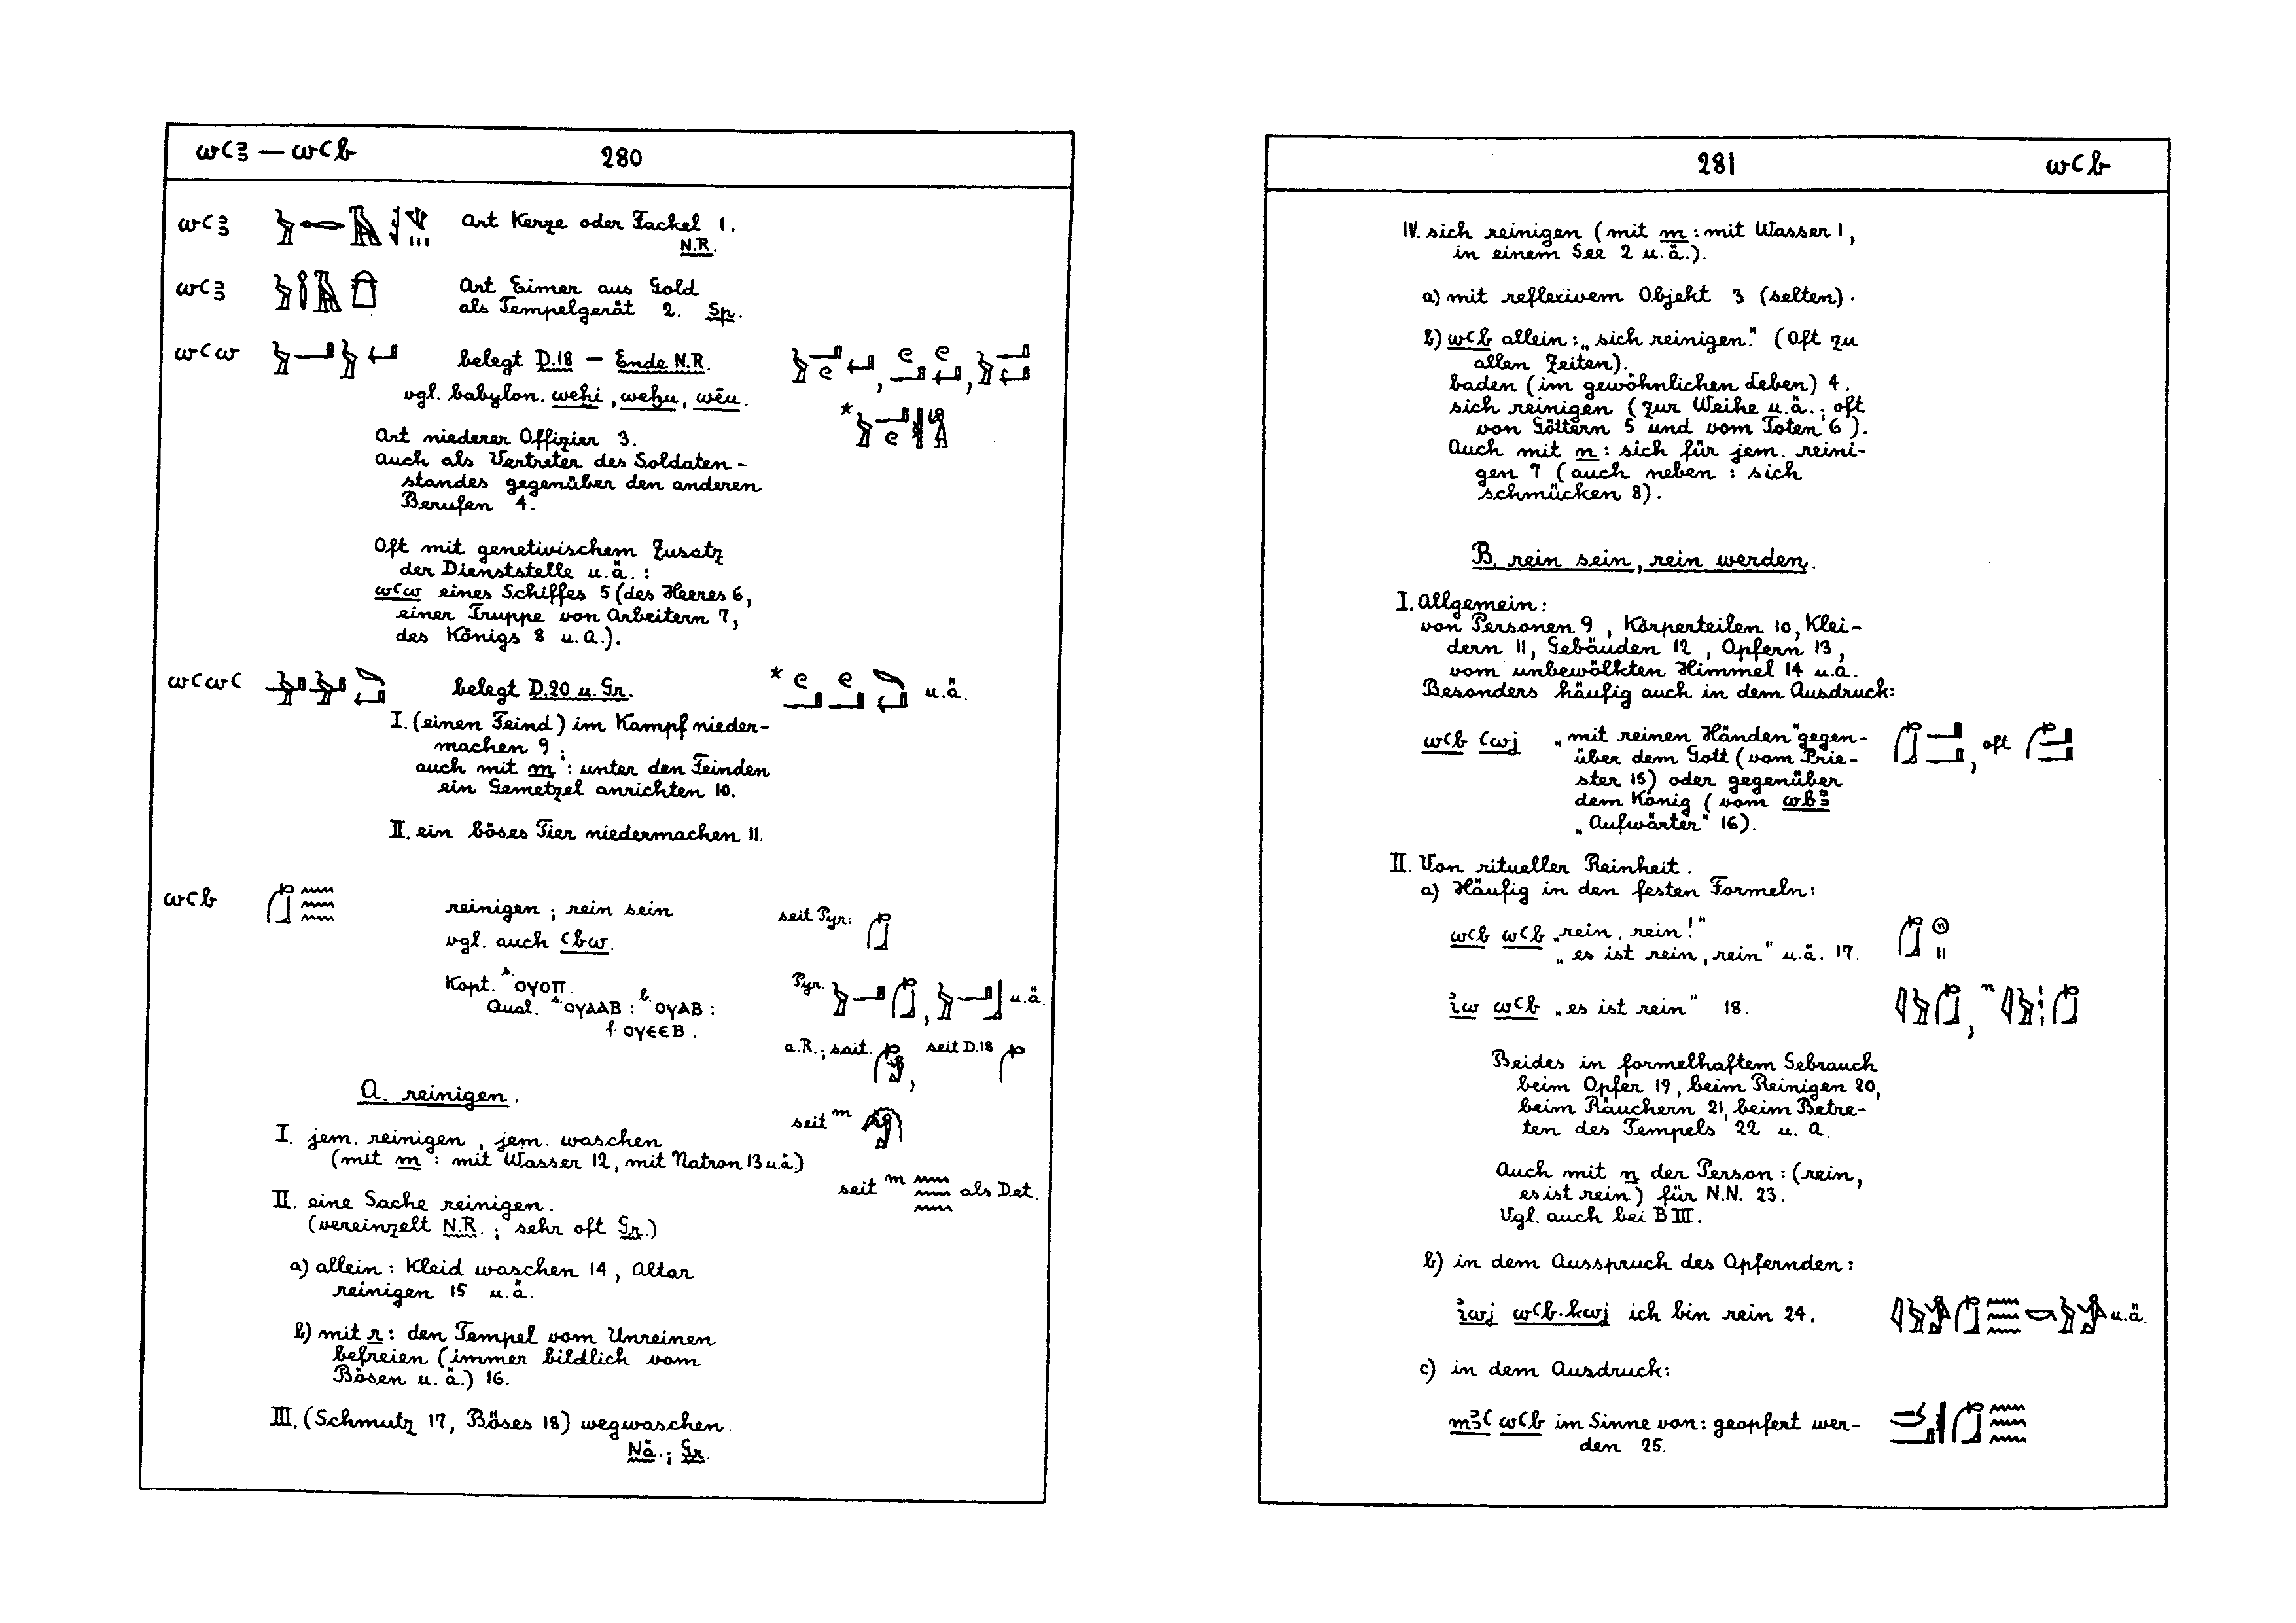 wꜥꜣ — wꜥb 280
wꜥꜣ Art Kerze oder Fackel 1.
N.R.
wꜥꜣ Art Eimer aus Gold
als Tempelgerät 2. Sp.
wꜥw belegt D.18 — Ende N.R.
vgl. babylon. weḫi, weḫu, wēu.
Art niederer Offizier 3.
Auch als Vertreter des Soldaten-
standes gegenüber den anderen
Berufen 4.
Oft mit genetivischem Zusatz
der Dienststelle u.ä.:
wꜥw eines Schiffes 5 (des Heeres 6,
einer Truppe von Arbeitern 7,
des Königs 8 u.a.).
wꜥwꜥ belegt D.20 u. Gr. u.ä.
I. (einen Feind) im Kampf nieder-
machen 9;
auch mit m: unter den Feinden
ein Gemetzel anrichten 10.
II. ein böses Tier niedermachen 11.
wꜥb reinigen; rein sein seit Pyr:
vgl. auch ꜥbw.
Kopt. s. ⲟⲩⲟⲡ. Pyr. u.ä.
Qual. s. ⲟⲩⲁⲁⲃ: b. ⲟⲩⲁⲃ:
f. ⲟⲩⲉⲉⲃ.
a.R.; sait. , seit D.18
A. reinigen.
seit m
I. jem. reinigen, jem. waschen
(mit m: mit Wasser 12, mit Natron 13 u.ä.)
seit m als Det.
II. eine Sache reinigen.
(vereinzelt N.R.; sehr oft Gr.)
a) allein: Kleid waschen 14, Altar
reinigen 15 u.ä.
b) mit r: den Tempel vom Unreinen
befreien (immer bildlich vom
Bösen u.ä.) 16.
III. (Schmutz 17, Böses 18) wegwaschen.
Nä.; Gr.
281 wꜥb
IV. sich reinigen (mit m: mit Wasser 1,
in einem See 2 u.ä.).
a) mit reflexivem Objekt 3 (selten).
b) wꜥb allein: „sich reinigen." (Oft zu
allen Zeiten).
baden (im gewöhnlichen Leben) 4.
sich reinigen (zur Weihe u.ä.; oft
von Göttern 5 und vom Toten 6).
Auch mit n: sich für jem. reini-
gen 7 (auch neben: sich
schmücken 8).
B. rein sein, rein werden.
I. Allgemein:
von Personen 9, Körperteilen 10, Klei-
dern 11, Gebäuden 12, Opfern 13,
vom unbewölkten Himmel 14 u.a.
Besonders häufig auch in dem Ausdruck:
wꜥb ꜥwj „mit reinen Händen" gegen- , oft
über dem Gott (vom Prie-
ster 15) oder gegenüber
dem König (vom wbꜣ
„Aufwärter" 16).
II. Von ritueller Reinheit.
a) Häufig in den festen Formeln:
wꜥb wꜥb „rein, rein!"
„es ist rein, rein" u.ä. 17.
iw wꜥb „es ist rein" 18.
Beides in formelhaftem Gebrauch
beim Opfer 19, beim Reinigen 20,
beim Räuchern 21, beim Betre-
ten des Tempels 22 u. a.
Auch mit n der Person: (rein,
es ist rein) für N.N. 23.
Vgl. auch bei B III.
b) in dem Ausspruch des Opfernden:
iwj wꜥb.kwj ich bin rein 24. u.ä.
c) in dem Ausdruck:
mꜣꜥ wꜥb im Sinne von: geopfert wer-
den 25.